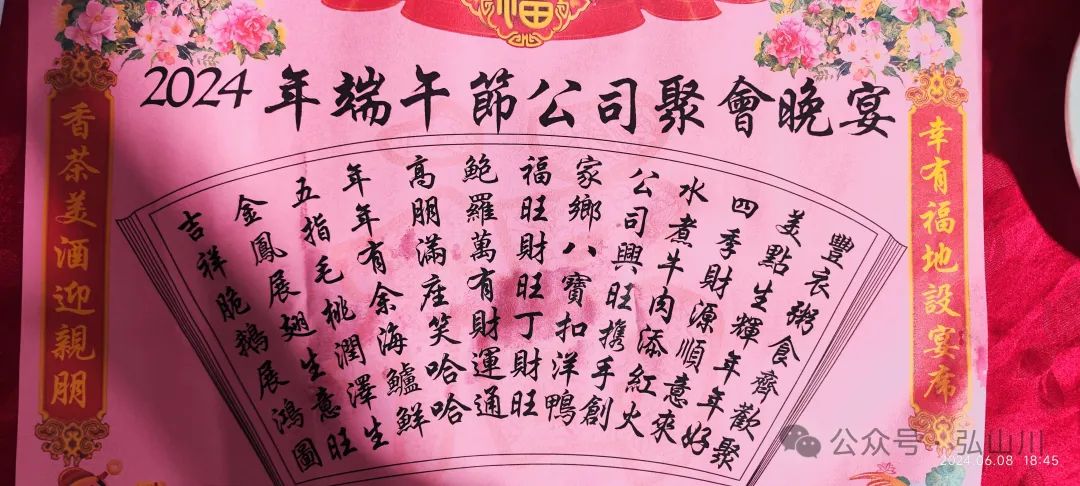 福
2024年端午節公司聚會晚宴
幸有福地設宴席
豐衣粥食齊歡聚
美點生輝年年好
四季財源順意來
水煮牛肉添紅火
公司興旺携手創
家鄉八寶扣洋鴨
福旺財旺丁財旺
鮑羅萬有財運通
高朋滿座笑哈哈
年年有余海鱸鮮
五指毛桃潤澤生
金鳳展翅生意旺
吉祥脆鵝展鴻圖
香茶美酒迎親朋
公众号·弘山川
2024.06.08 18:45